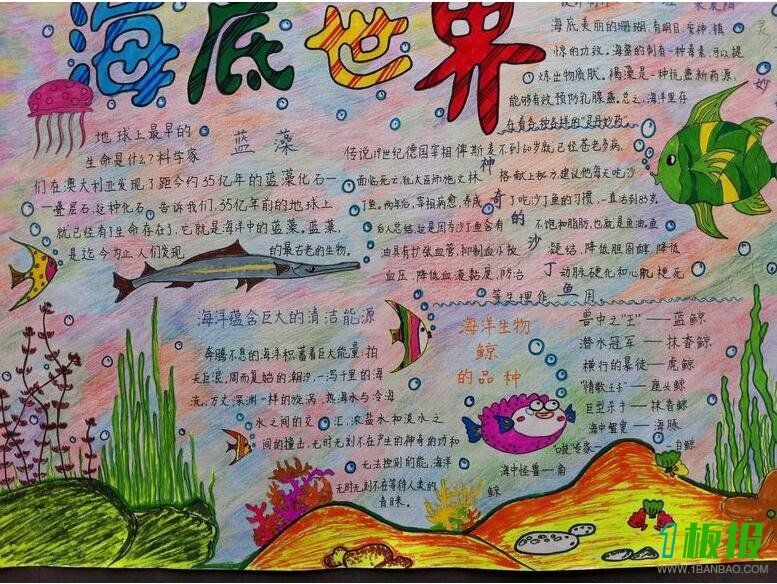 海底世界
海底美丽的珊瑚,有明目、安神、镇
惊的功效。海蜇的刺有一种毒素,可以提
炼出物质肽。褐藻是一种抗癌新药源,
能够有效预防乳腺癌。总之,海洋里存
在着各种各样的“灵丹妙药”。
灵
妙
蓝藻
地球上最早的
生命是什么?科学家
们在澳大利亚发现了距今约35亿年的蓝藻化石一
一叠层石,这种化石告诉我们,35亿年前的地球上
就已经有了生命存在了,它就是海洋中的蓝藻。蓝藻,
是迄今为止人们发现的最古老的生物。
神奇的沙丁鱼
传说19世纪德国宰相俾斯麦不到60岁就已经苍老多病,
面临死亡,犹太医师施文林格献上秘方,建议他每天吃沙
丁鱼。两年后,宰相病愈,养成了吃沙丁鱼的习惯,一直活到83岁,
有人总结,这是因为沙丁鱼含有不饱和脂肪,也就是鱼油。鱼
油具有扩张血管,抑制血小板凝结,降低胆固醇,降低
血压,降低血液黏度,防治动脉硬化和心肌梗死
等生理作用。
海洋蕴含巨大的清洁能源
奔腾不息的海洋积蓄着巨大能量:拍
天巨浪,周而复始的潮汐,一泻千里的海
流,万丈深渊一样的旋涡,热海水与冷海
水之间的交汇,浓盐水和淡水之
间的撞击,无时无刻不在产生的神奇的功和
无法控制的能,海洋
无时无刻不在等待人类的
青睐。
海洋生物
鲸
的品种
兽中之“王”——蓝鲸
潜水冠军——抹香鲸
横行的暴徒——虎鲸
“情歌王子”——座头鲸
巨型杀手——抹香鲸
海中蟹皇——海豚
一白鲸
海中怪兽一南
鲸
1板报
WWW.1BANBAO.COM